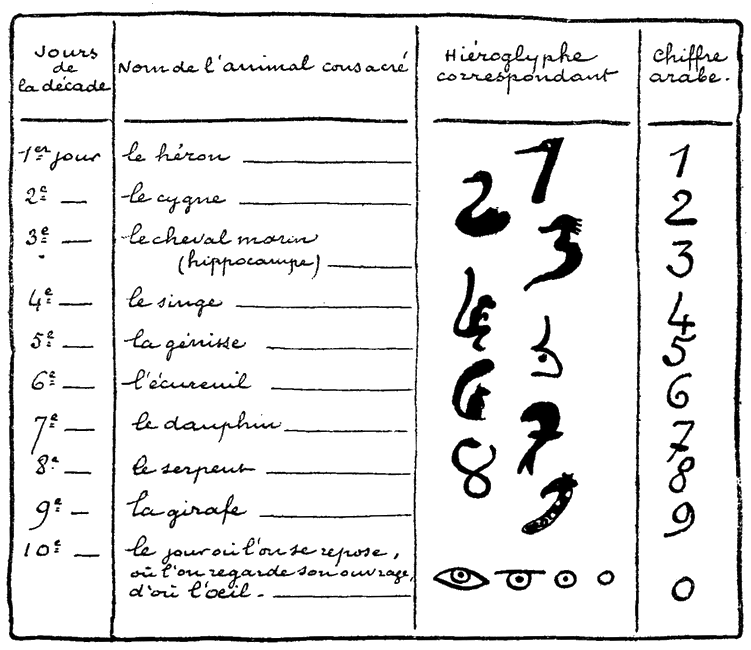 Jours de la décade
Nom de l'animal consacré
Hiéroglyphe correspondant
Chiffre arabe.
1er jour le héron 1
2e — le cygne 2
3e — le cheval marin
(hippocampe) 3
4e — le singe 4
5e — la génisse 5
6e — l'écureuil 6
7e — le dauphin 7
8e — le serpent 8
9e — la girafe 9
10e — le jour où l'on se repose,
où l'on regarde son ouvrage,
d'où l'œil. 0